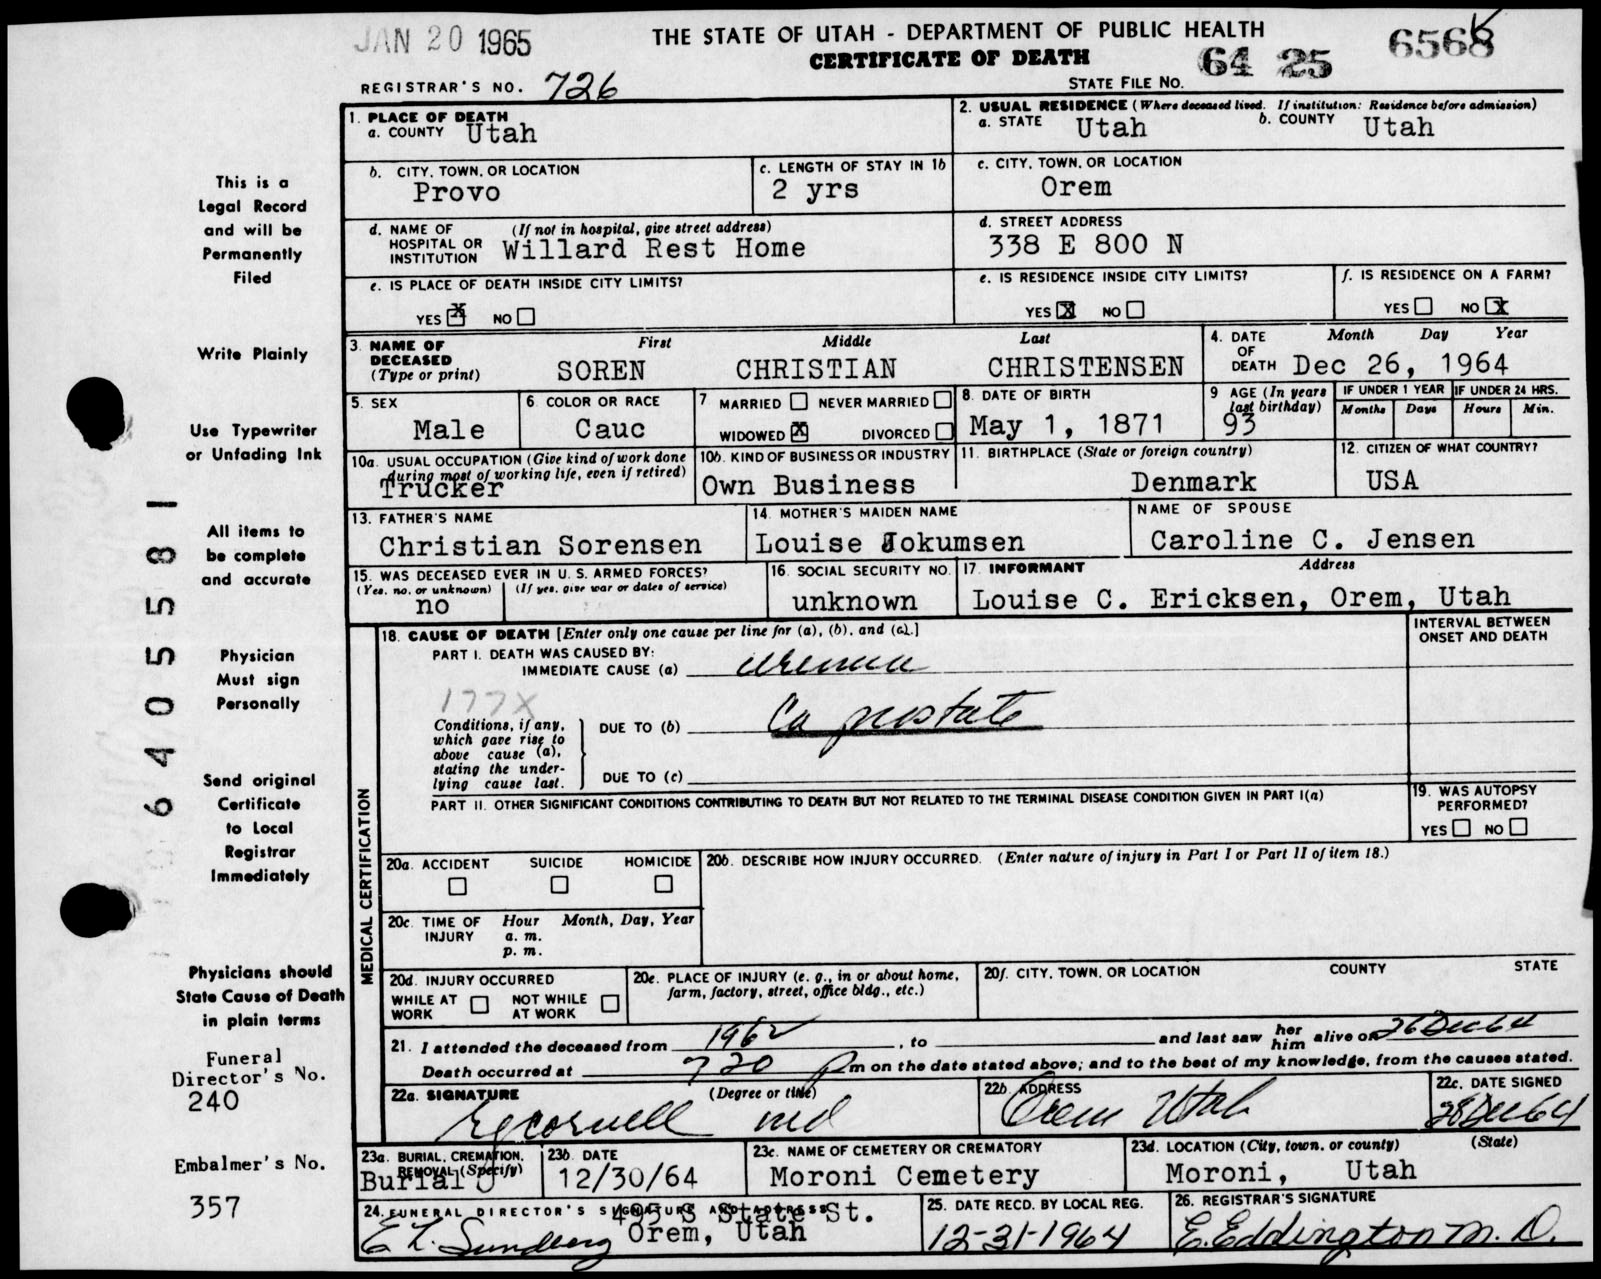 JAN 20 1965
THE STATE OF UTAH - DEPARTMENT OF PUBLIC HEALTH
CERTIFICATE OF DEATH
64 25 6568
REGISTRAR'S NO. 726
STATE FILE NO.
1. PLACE OF DEATH
a. COUNTY Utah
2. USUAL RESIDENCE (Where deceased lived. If institution: Residence before admission)
a. STATE Utah b. COUNTY Utah
b. CITY, TOWN, OR LOCATION Provo
c. LENGTH OF STAY IN 1b 2 yrs
c. CITY, TOWN, OR LOCATION Orem
d. NAME OF HOSPITAL OR INSTITUTION (If not in hospital, give street address) Willard Rest Home
d. STREET ADDRESS 338 E 800 N
e. IS PLACE OF DEATH INSIDE CITY LIMITS?
YES X NO
e. IS RESIDENCE INSIDE CITY LIMITS?
YES X NO
f. IS RESIDENCE ON A FARM?
YES NO X
3. NAME OF DECEASED (Type or print)
First Middle Last
SOREN CHRISTIAN CHRISTENSEN
4. DATE OF DEATH Month Day Year
Dec 26, 1964
5. SEX Male
6. COLOR OR RACE Cauc
7 MARRIED NEVER MARRIED
WIDOWED X DIVORCED
8. DATE OF BIRTH May 1, 1871
9 AGE (In years last birthday) 93
IF UNDER 1 YEAR Months Days
IF UNDER 24 HRS. Hours Min.
10a. USUAL OCCUPATION (Give kind of work done during most of working life, even if retired)
Trucker
10b. KIND OF BUSINESS OR INDUSTRY
Own Business
11. BIRTHPLACE (State or foreign country)
Denmark
12. CITIZEN OF WHAT COUNTRY?
USA
13. FATHER'S NAME
Christian Sorensen
14. MOTHER'S MAIDEN NAME
Louise Jokumsen
NAME OF SPOUSE
Caroline C. Jensen
15. WAS DECEASED EVER IN U. S. ARMED FORCES?
(Yes, no, or unknown) (If yes, give war or dates of service)
no
16. SOCIAL SECURITY NO.
unknown
17. INFORMANT Address
Louise C. Ericksen, Orem, Utah
MEDICAL CERTIFICATION
18. CAUSE OF DEATH [Enter only one cause per line for (a), (b), and (c).]
INTERVAL BETWEEN ONSET AND DEATH
PART I. DEATH WAS CAUSED BY:
IMMEDIATE CAUSE (a) uremia
177X
Conditions, if any, which gave rise to above cause (a), stating the underlying cause last.
DUE TO (b) Ca prostate
DUE TO (c)
PART II. OTHER SIGNIFICANT CONDITIONS CONTRIBUTING TO DEATH BUT NOT RELATED TO THE TERMINAL DISEASE CONDITION GIVEN IN PART I(a)
19. WAS AUTOPSY PERFORMED?
YES NO
20a. ACCIDENT SUICIDE HOMICIDE
20b. DESCRIBE HOW INJURY OCCURRED. (Enter nature of injury in Part I or Part II of item 18.)
20c. TIME OF INJURY Hour Month, Day, Year
a. m.
p. m.
20d. INJURY OCCURRED
WHILE AT WORK NOT WHILE AT WORK
20e. PLACE OF INJURY (e. g., in or about home, farm, factory, street, office bldg., etc.)
20f. CITY, TOWN, OR LOCATION COUNTY STATE
21. I attended the deceased from 1962, to and last saw her him alive on 26 Dec 64
Death occurred at 720 pm on the date stated above; and to the best of my knowledge, from the causes stated.
22a. SIGNATURE (Degree or title)
md
22b. ADDRESS
Orem Utah
22c. DATE SIGNED
28 Dec 64
23a. BURIAL, CREMATION, REMOVAL (Specify)
Burial
23b. DATE
12/30/64
23c. NAME OF CEMETERY OR CREMATORY
Moroni Cemetery
23d. LOCATION (City, town, or county) (State)
Moroni, Utah
24. FUNERAL DIRECTOR'S SIGNATURE AND ADDRESS
E L. Sundberg
495 S State St.
Orem, Utah
25. DATE RECD. BY LOCAL REG.
12-31-1964
26. REGISTRAR'S SIGNATURE
E. Eddington M. D.
This is a
Legal Record
and will be
Permanently
Filed
Write Plainly
Use Typewriter
or Unfading Ink
All items to
be complete
and accurate
Physician
Must sign
Personally
Send original
Certificate
to Local
Registrar
Immediately
Physicians should
State Cause of Death
in plain terms
Funeral
Director's No.
240
Embalmer's No.
357
64055581